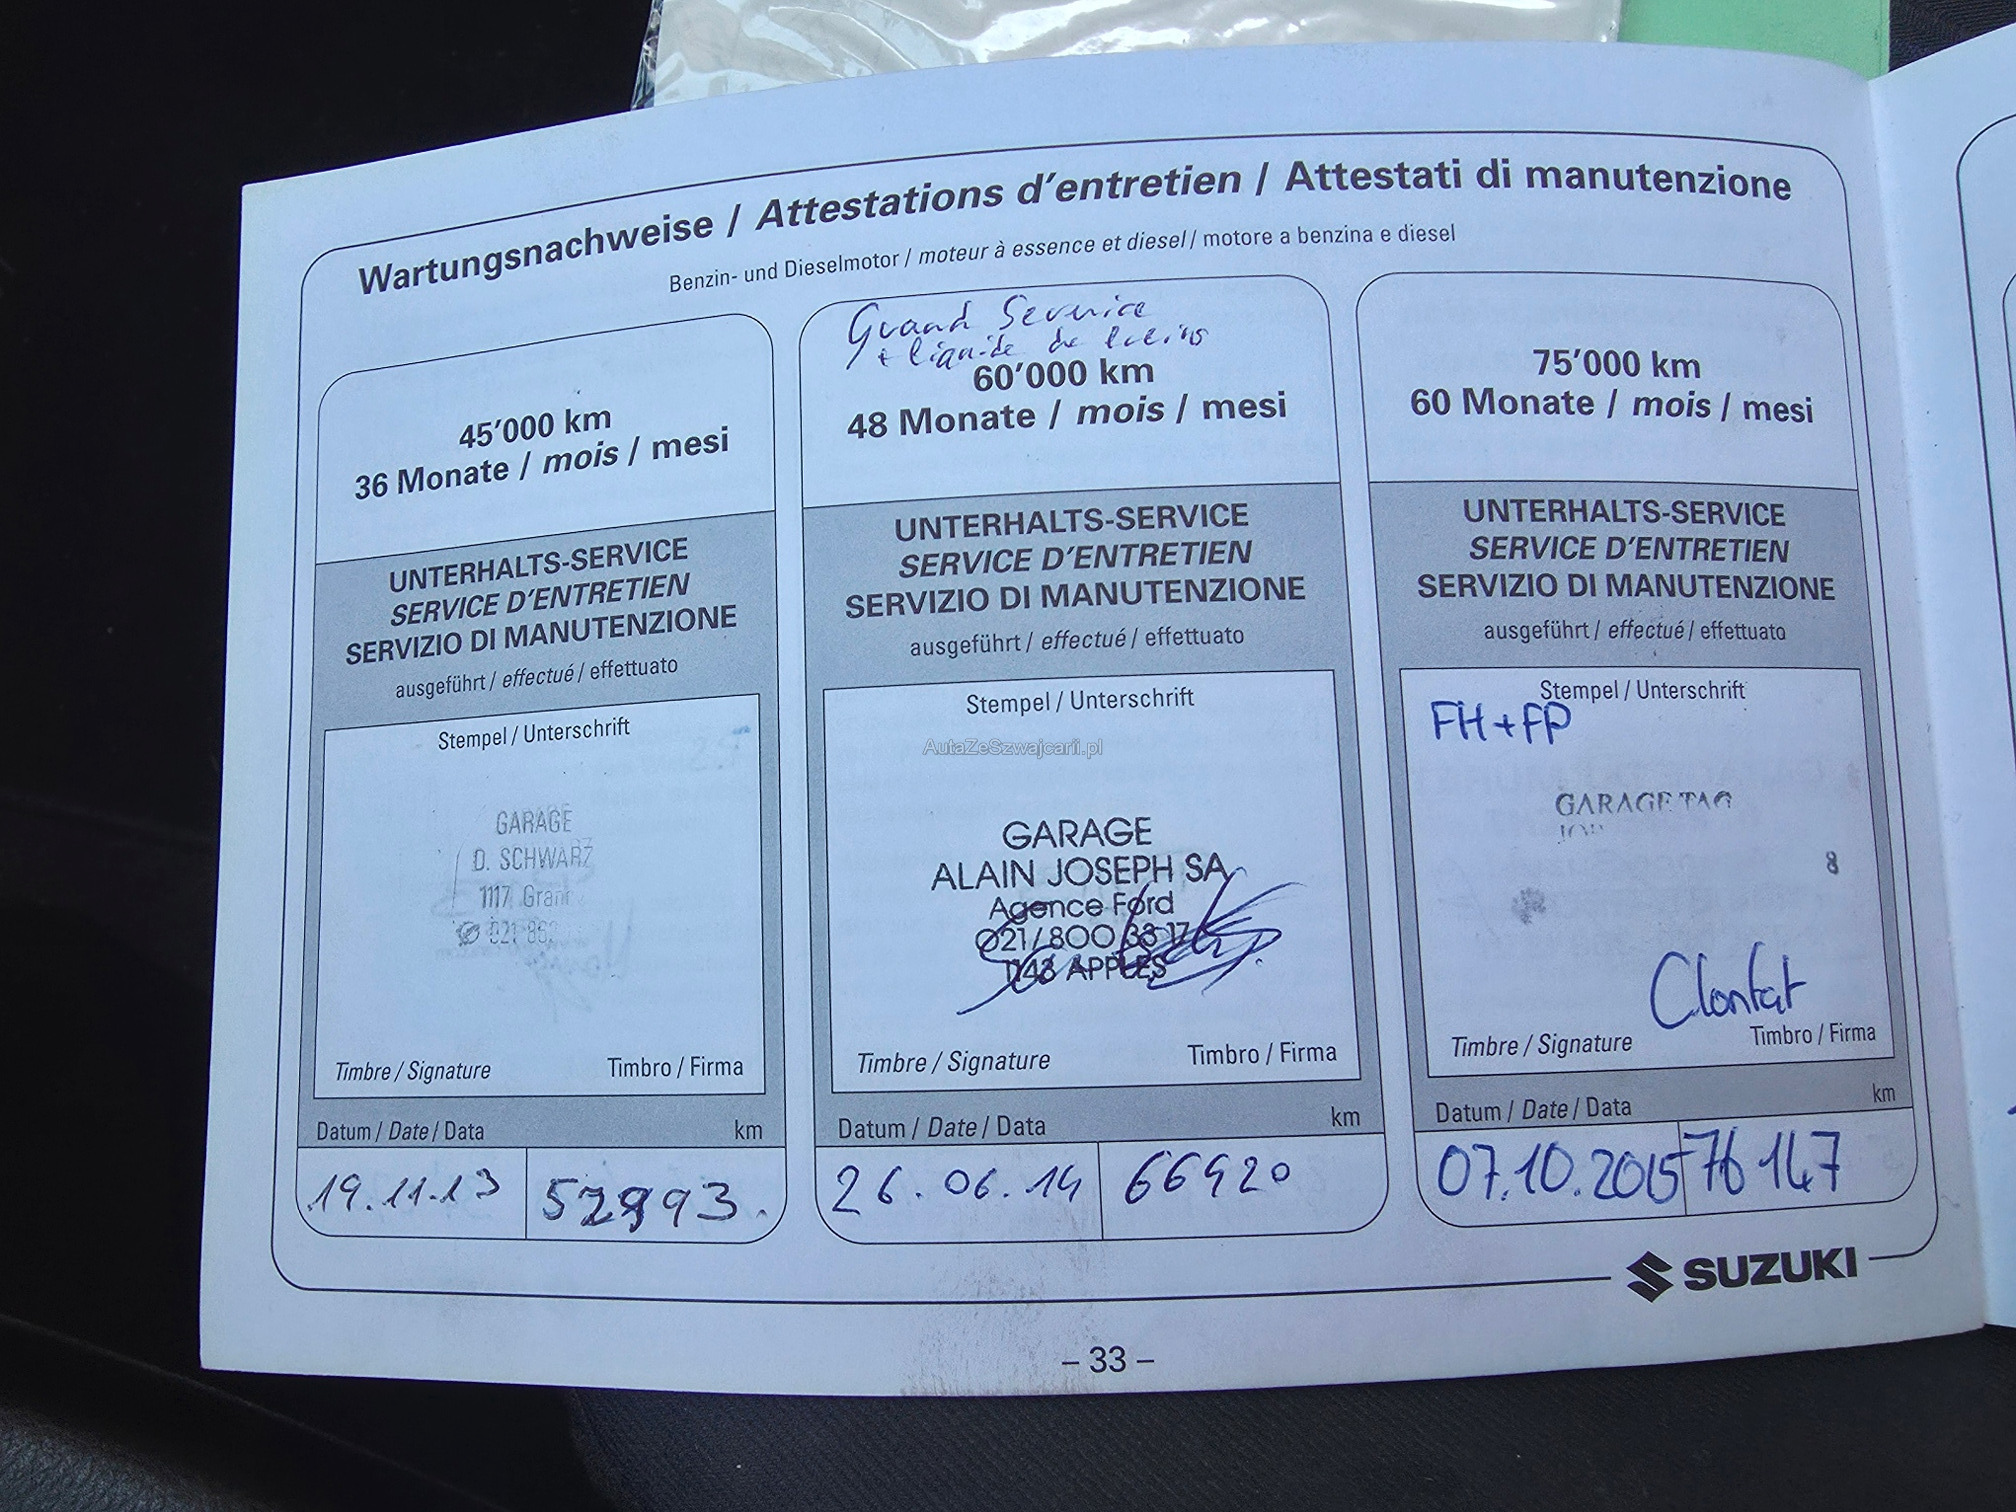 Wartungsnachweise / Attestations d'entretien / Attestati di manutenzione
Benzin- und Dieselmotor / moteur à essence et diesel / motore a benzina e diesel
45'000 km
36 Monate / mois / mesi
UNTERHALTS-SERVICE
SERVICE D'ENTRETIEN
SERVIZIO DI MANUTENZIONE
ausgeführt / effectué / effettuato
Stempel / Unterschrift
GARAGE
D. SCHWARZ
1117
021
Timbre / Signature Timbro / Firma
Datum / Date / Data km
19.11.13 52993.
Grand Service
+ liquide de freins
60'000 km
48 Monate / mois / mesi
UNTERHALTS-SERVICE
SERVICE D'ENTRETIEN
SERVIZIO DI MANUTENZIONE
ausgeführt / effectué / effettuato
Stempel / Unterschrift
AutaZeSzwajcarii.pl
GARAGE
ALAIN JOSEPH SA
Agence Ford
021/800 33 17
1143 APPLES
Timbre / Signature Timbro / Firma
Datum / Date / Data km
26.06.14 66920
75'000 km
60 Monate / mois / mesi
UNTERHALTS-SERVICE
SERVICE D'ENTRETIEN
SERVIZIO DI MANUTENZIONE
ausgeführt / effectué / effettuato
Stempel / Unterschrift
FH+FP
GARAGE
8
Timbre / Signature Timbro / Firma
Datum / Date / Data km
07.10.2015 76147
SUZUKI
– 33 –